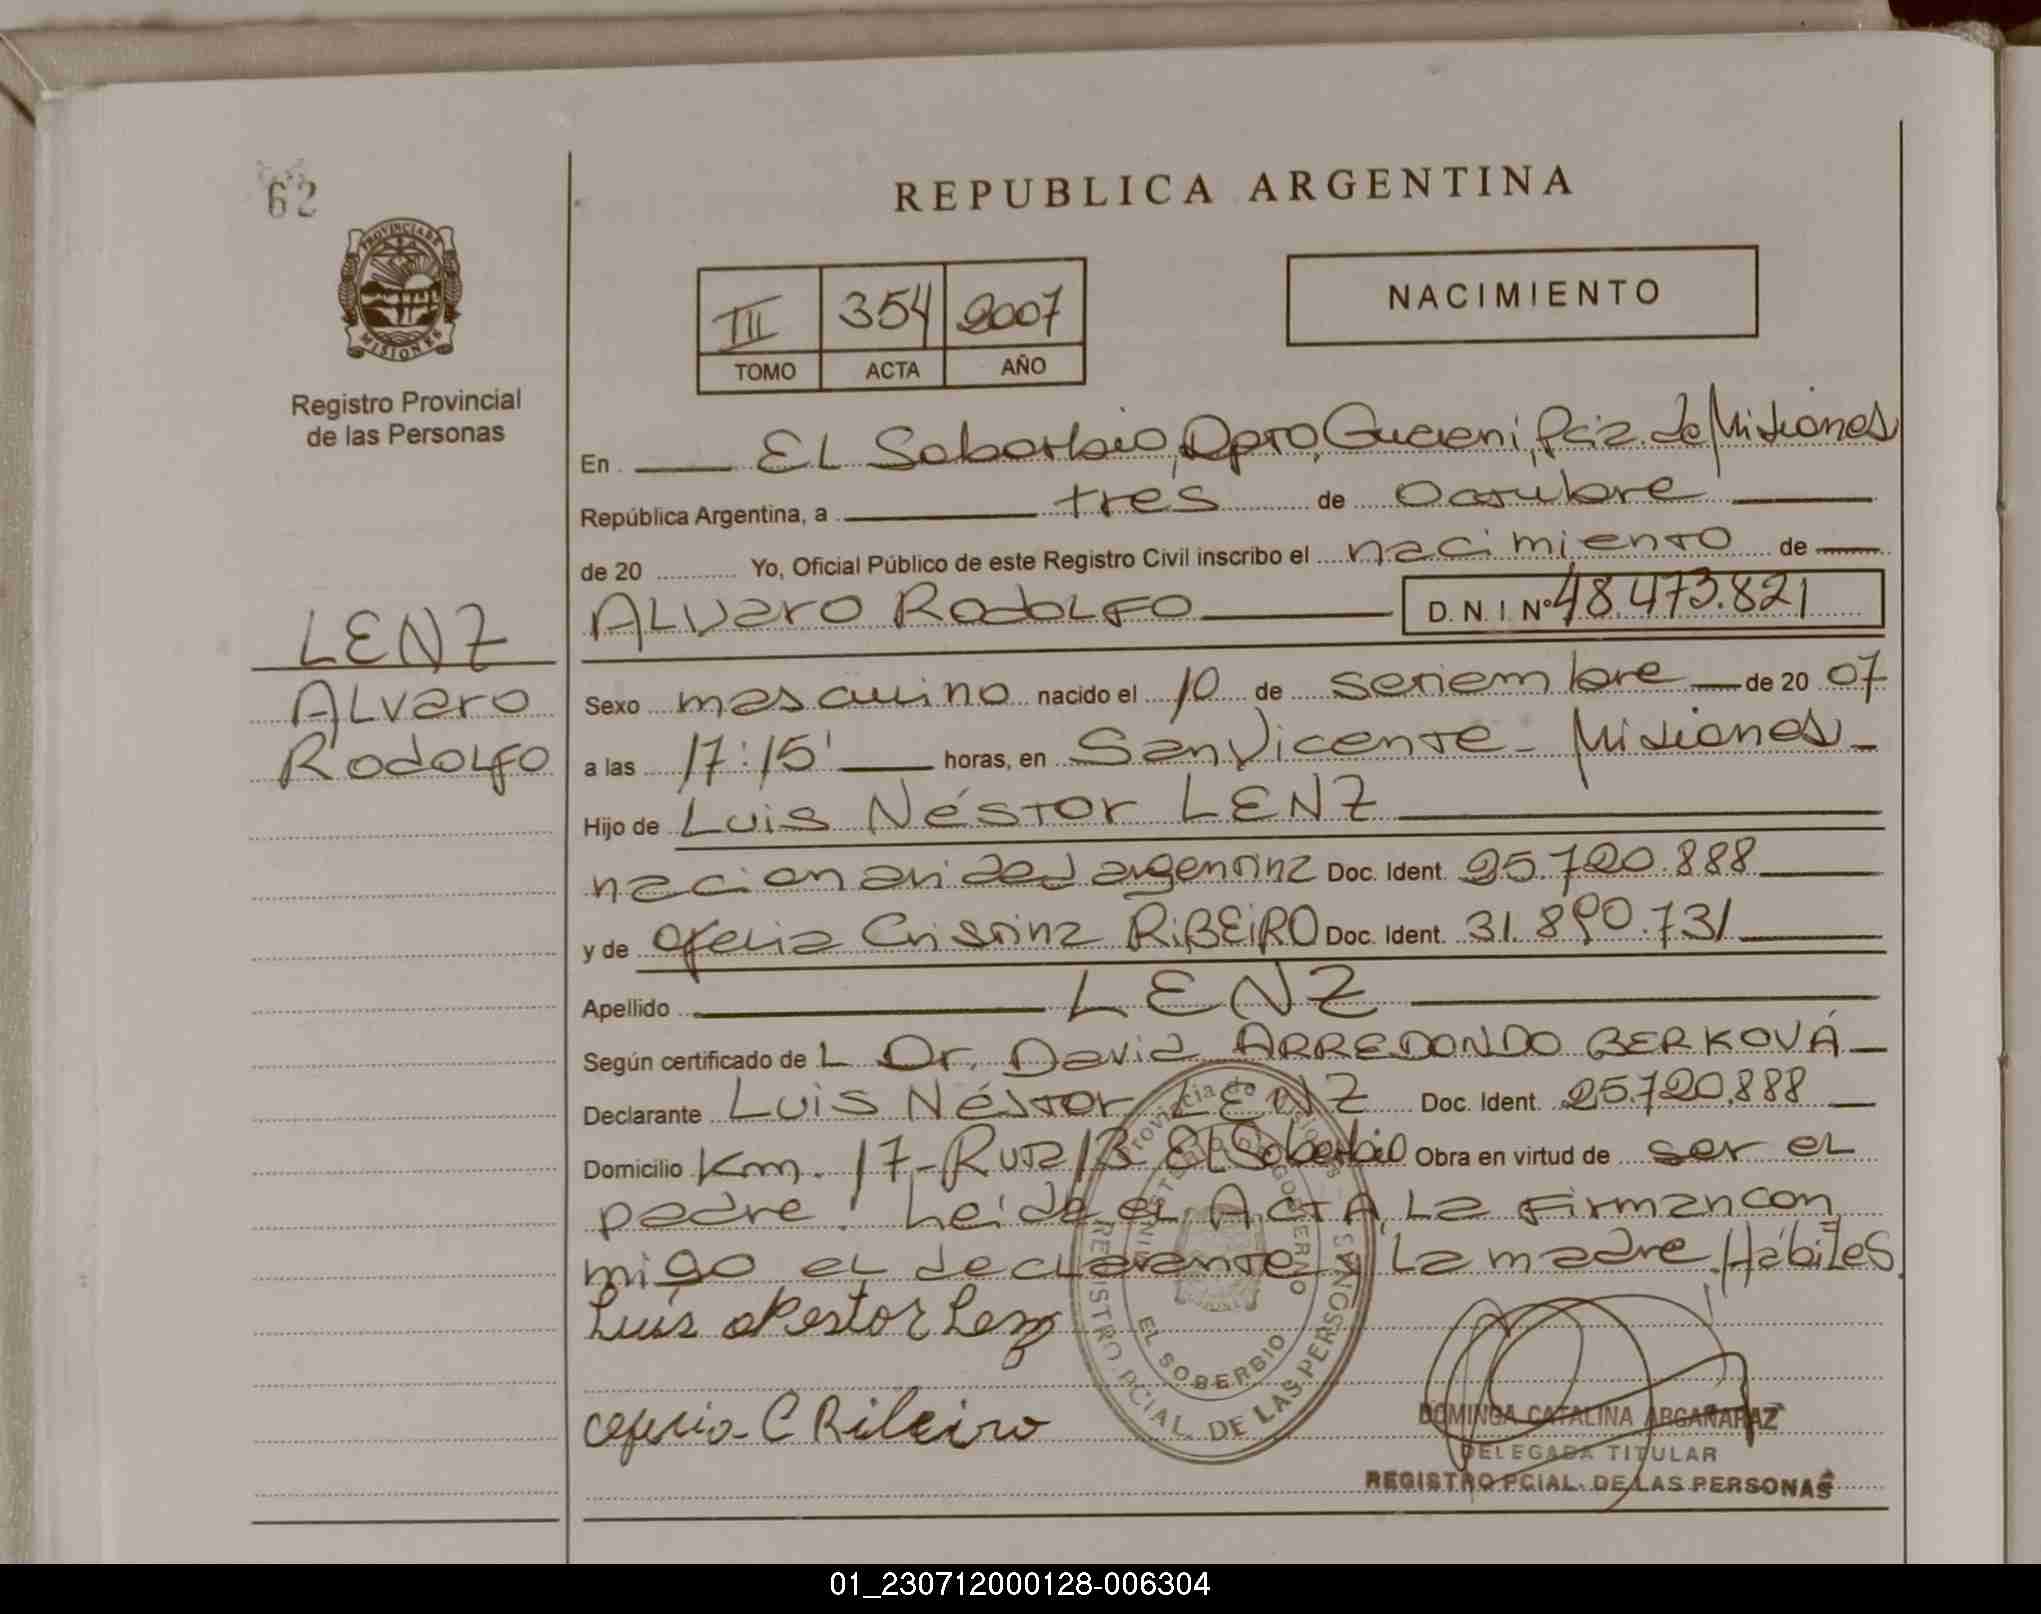 62
REPUBLICA ARGENTINA
PROVINCIA DE
MISIONES
Registro Provincial
de las Personas
III 354 2007
TOMO ACTA AÑO
NACIMIENTO
En El Soberbio, Dpto, Guarani, Pcia. de Misiones
República Argentina, a tres de Octubre
de 20 Yo, Oficial Público de este Registro Civil inscribo el nacimiento de
ALVaro RodoLFo D.N.I. Nº 48.473.821
LENZ
ALvaro
RodoLfo
Sexo masculino nacido el 10 de setiembre de 20 07
a las 17:15' horas, en San Vicente - Misiones
Hijo de Luis Néstor LENZ
nacionalidad argentina Doc. Ident. 25.720.888
y de Ofelia Cristina RiBEiRO Doc. Ident. 31.890.731
Apellido LENZ
Según certificado de L Dr. David ARREDONDO BERKOVÁ
Declarante Luis Néstor LENZ Doc. Ident. 25.720.888
Domicilio Km. 17 - Ruta 13 El Soberbio Obra en virtud de ser el
padre. Leida el ACTA, La firman con
migo el declarante y La madre. Hábiles.
Luis Nestor Lenz
Ofelia C Ribeiro
Provincia de Misiones
MINISTERIO DE GOBIERNO
EL SOBERBIO
REGISTRO PCIAL. DE LAS PERSONAS
DOMINGA CATALINA ARGAÑARAZ
DELEGADA TITULAR
REGISTRO PCIAL. DE LAS PERSONAS
01_230712000128-006304